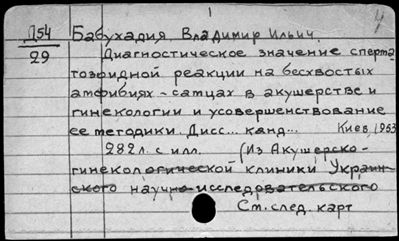 1
4
Д54 Бабухадия, Владимир Ильич.
29 Диагностическое значение сперма
тозоидной реакции на бесхвостых
амфибиях - самцах в акушерстве и
гинекологии и усовершенствование
ее методики. Дисс... канд... Киев 1953
282 л. с илл. (Из Акушерско-
гинекологической клиники Украин-
ского научно-исследовательского
См. след. карт